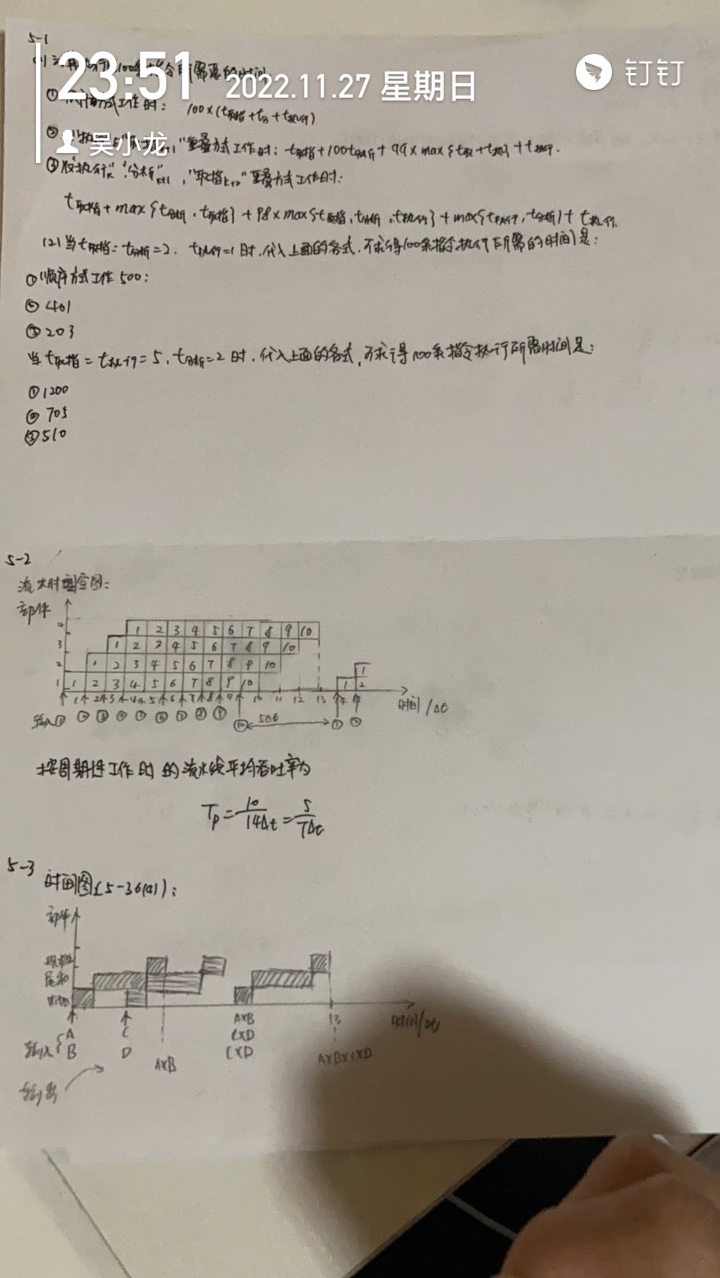 5-1
23:51
2022.11.27 星期日
钉钉
吴小龙
100×(t取指+t分析+t执行)
"重叠方式工作时: t取指+100t分析+99×max{t取+t执行}+t执行.
"分析"k+1, "取指k+2"重叠方式工作时:
t取指+max{t分析,t取指}+98×max{t取指,t分析,t执行}+max{t执行,t分析}+t执行.
(2)当t取指=t分析=2, t执行=1时,代入上面的各式,可求得100条指令执行所需的时间是:
①顺序方式工作500;
②401
③203
当t取指=t执行=5,t分析=2时,代入上面的各式,可求得100条指令执行所需时间是:
①1200
②705
③510
5-2
流水时空图:
部件
4
1 2 3 4 5 6 7 8 9 10
3
1 2 3 4 5 6 7 8 9 10
2
1 2 3 4 5 6 7 8 9 10 1
1
1 2 3 4 5 6 7 8 9 10 1 2
1 2 3 4 5 6 7 8 9 10 11 12 13
时间/Δt
输入① ② ③ ④ ⑤ ⑥ ⑦ ⑧ ⑨ ⑩ ① ②
按周期性工作时的流水线平均吞吐率为
Tp=10/14Δt=5/7Δt
5-3
时间图(5-36(a)):
部件
时间/Δt
13
输入{A B
C D
A×B
A×B
C×D
C×D
A×B×C×D
输出